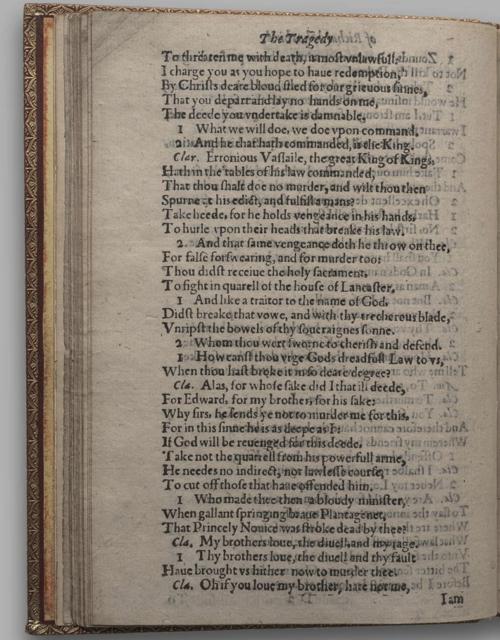 The Tragedy
To threaten me with death, is most vnlawfull:
I charge you as you hope to haue redemption,
By Christs deare bloud shed for our grieuous sinnes,
That you depart and lay no hands on me,
The deede you vndertake is damnable.
1 What we will doe, we doe vpon command.
2 And he that hath commanded, is the King.
Clar. Erronious Vassaile, the great King of Kings,
Hath in the tables of his law commanded,
That thou shalt doe no murder, and wilt thou then
Spurne at his edict, and fulfill a mans?
Take heede, for he holds vengeance in his hands,
To hurle vpon their heads that breake his law.
2 And that same vengeance doth he throw on thee,
For false forswearing, and for murder too:
Thou didst receiue the holy sacrament,
To fight in quarell of the house of Lancaster.
1 And like a traitor to the name of God,
Didst breake that vowe, and with thy trecherous blade,
Vnripst the bowels of thy soueraignes sonne.
2 Whom thou wert sworne to cherish and defend.
1 How canst thou vrge Gods dreadfull Law to vs,
When thou hast broke it in so deare degree?
Cla. Alas, for whose sake did I that ill deede,
For Edward, for my brother, for his sake:
Why sirs, he sends ye not to murder me for this,
For in this sinne he is as deepe as I:
If God will be reuenged for this deede.
Take not the quarrell from his powerfull arme,
He needes no indirect, nor lawlesse course,
To cut off those that haue offended him.
1 Who made thee then a bloudy minister,
When gallant springing braue Plantagenet,
That Princely Nouice was stroke dead by thee?
Cla. My brothers loue, the diuell, and my rage.
1 Thy brothers loue, the diuell and thy fault
Haue brought vs hither now to murder thee.
Cla. Oh if you loue my brother, hate not me,
I am